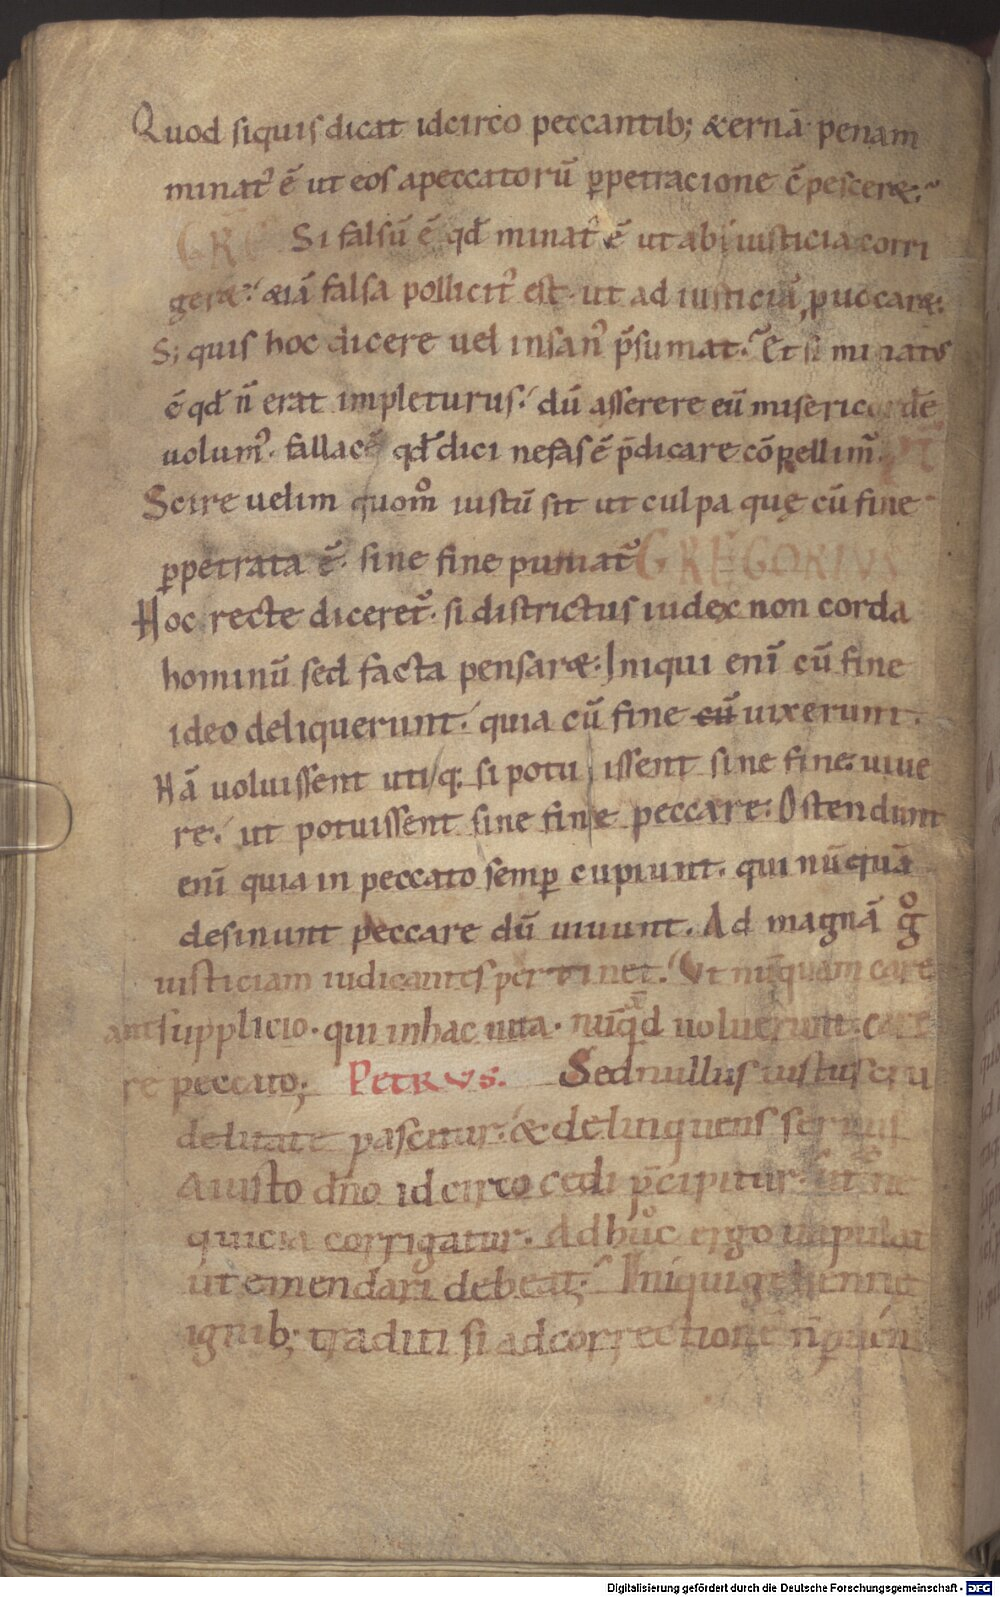 Quod siquis dicat idcirco peccantib; &ernā penam
minat᾽ ē ut eos apeccatorū ꝑpetracione c̄pescer&.
GRE Si falsū ē qđ minat᾽ ē ut abiiusticia corri
ger& &iā falsa pollicit᾽ est. ut ad iusticiā ꝓuocar&.
S; quis hoc dicere uel insan᾽ p̄sumat. Et si minat᾽
ē qđ n̄ erat impleturus. dū asserere eū misericordē
uolum᾽. fallacē qđ dici nefas ē p̄dicare cōpellim᾽. PT
Scire uelim quomº iustū sit ut culpa quę cū fine
ꝑpetrata ē. sine fine puniat᾽ GREGORIUS
Hoc recte diceret᾽. si districtus iudex non corda
hominū sed facta pensar&. Iniqui enī cū fine
ideo deliquerunt. quia cū fine cū uixerunt.
Nā uoluissent utiq; si potuissent sine fine uiue
re. ut potuissent sine fine peccare. Ostendunt
enī quia in peccato semꝑ cupiunt. qui nūquā
desinunt peccare dū uiuunt. Ad magnā gº
iusticiam iudicantes pertinet. Ut nūquam care
ant supplicio. qui inhac uita. nūqđ uoluerunt care
re peccato; PETRVS. Sed nullus iustus cru
delitate pascitur. & delinquens seruus
aiusto dn̄o idcirco cedi p̄cipitur. ut ne
quicia corrigatur. Ad hoc ergo uapulat
ut emendari debeat. Iniqui gehennę
ignib; traditi si adcorrectionē n̄